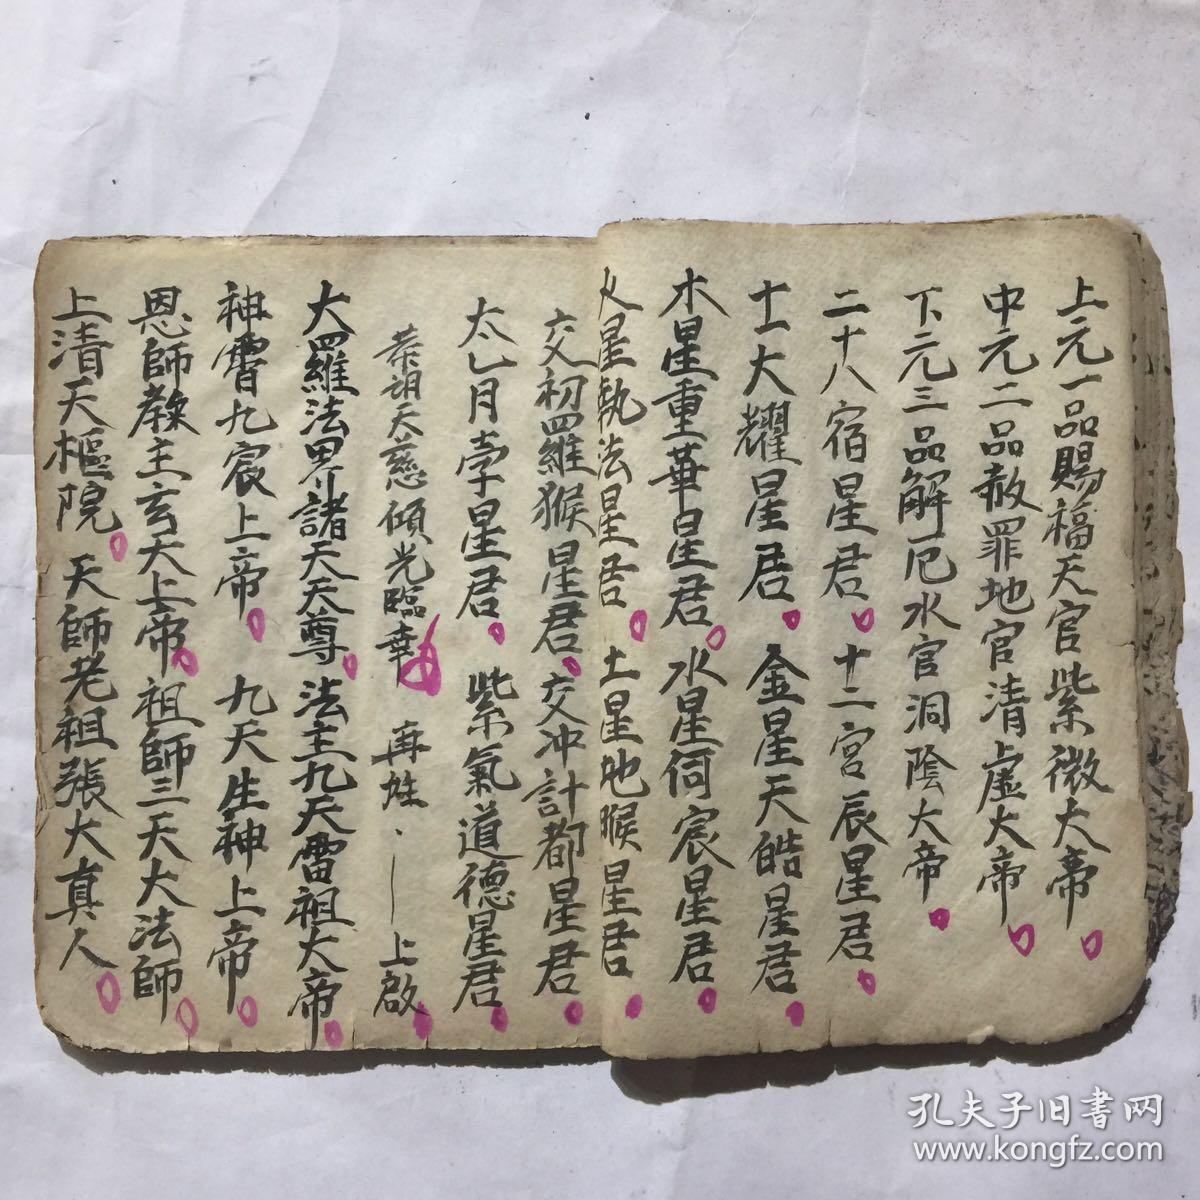 上元一品賜福天官紫微大帝
中元二品赦罪地官清虛大帝
下元三品解厄水官洞陰大帝
二十八宿星君 十二宮辰星君
十一大耀星君 金星天皓星君
木星重華星君 水星伺宸星君
火星執法星君 土星地睺星君
交初羅猴星君 交冲計都星君
太乚月孛星君 紫氣道德星君
恭詡天慈傾光臨幸 再姓 上啟
大羅法界諸天天尊 法主九天雷祖大帝
神霄九宸上帝 九天生神上帝
恩師教主玄天上帝 祖師三天大法師
上清天樞院 天師老祖張大真人
孔夫子旧书网
www.kongfz.com